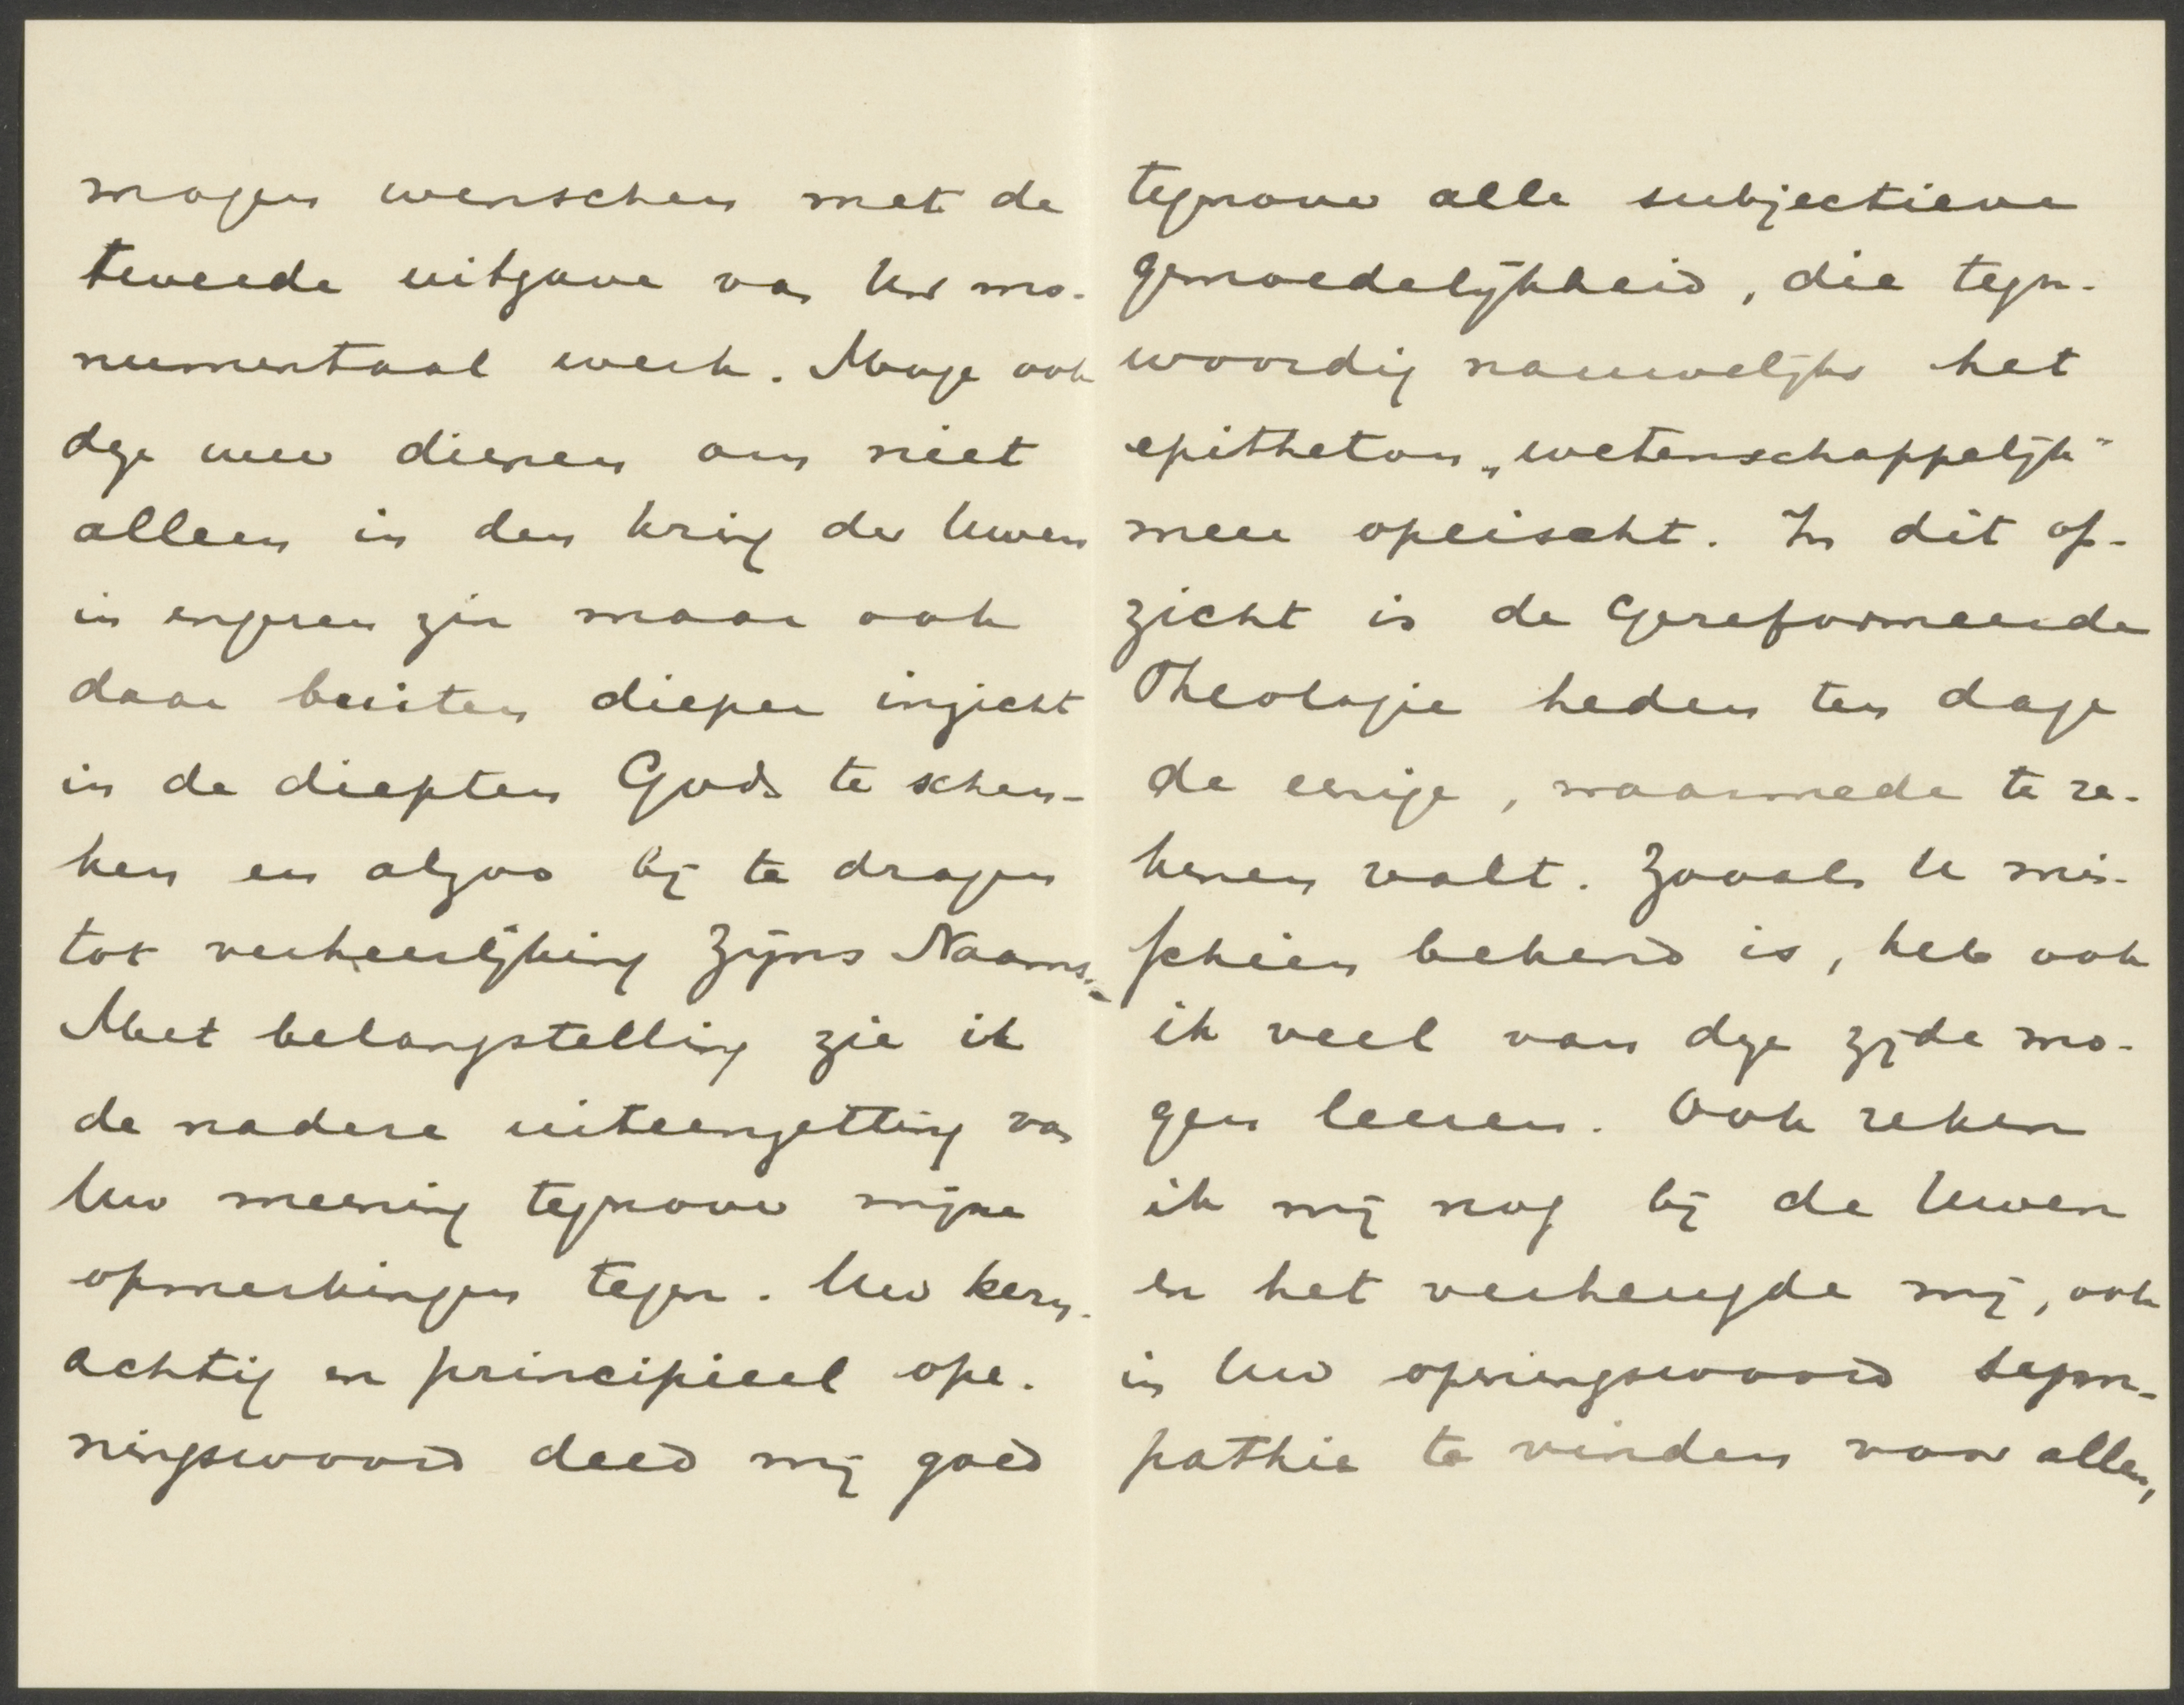 mogen wenschen met de
tweede uitgave van Uw mo-
numentaal werk. Moge ook
deze weer dienen om niet
alleen in den kring der Uwen
in engeren zin maar ook
daar buiten dieper inzicht
in de diepten Gods te schen-
ken en alzoo bij te dragen
tot verheerlijking Zijns Naams.
Met belangstelling zie ik
de nadere uiteenzetting van
Uw meening tegenover mijne
opmerkingen tegen. Uw kern-
achtig en principieel ope-
ningswoord deed mij goed
tegenover alle subjectieve
gemoedelijkheid, die tegen-
woordig nauwelijks het
epitheton „wetenschappelijk"
meer opeischt. In dit op-
zicht is de Gereformeerde
Theologie heden ten dage
de eenige, waarmede te re-
kenen valt. Zooals U mis-
schien bekend is, heb ook
ik veel van deze zijde mo-
gen leeren. Ook reken
ik mij nog bij de Uwen
en het verheugde mij, ook
in Uw openingswoord sym-
pathie te vinden voor allen,